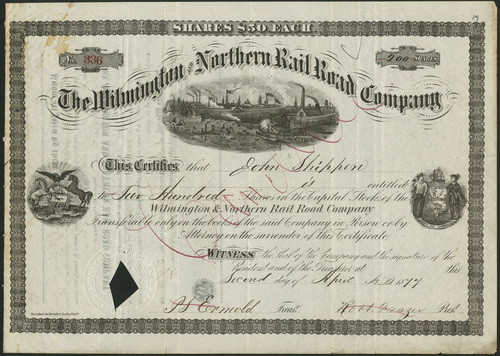 SHARES $50 EACH
No. 336
200 SHARES
The Wilmington and Northern Rail Road Company
This Certifies that John Shippen
is entitled
Two Hundred Shares in the Capital Stock of the
Wilmington & Northern Rail Road Company
Transferable only on the books of the said Company in Person or by
Attorney on the surrender of this Certificate
WITNESS the Seal of the Company and the signature of the
President and of the Treasurer at this
Second day of April A.D. 1877
Treas.
Robt. Frazer Pres.